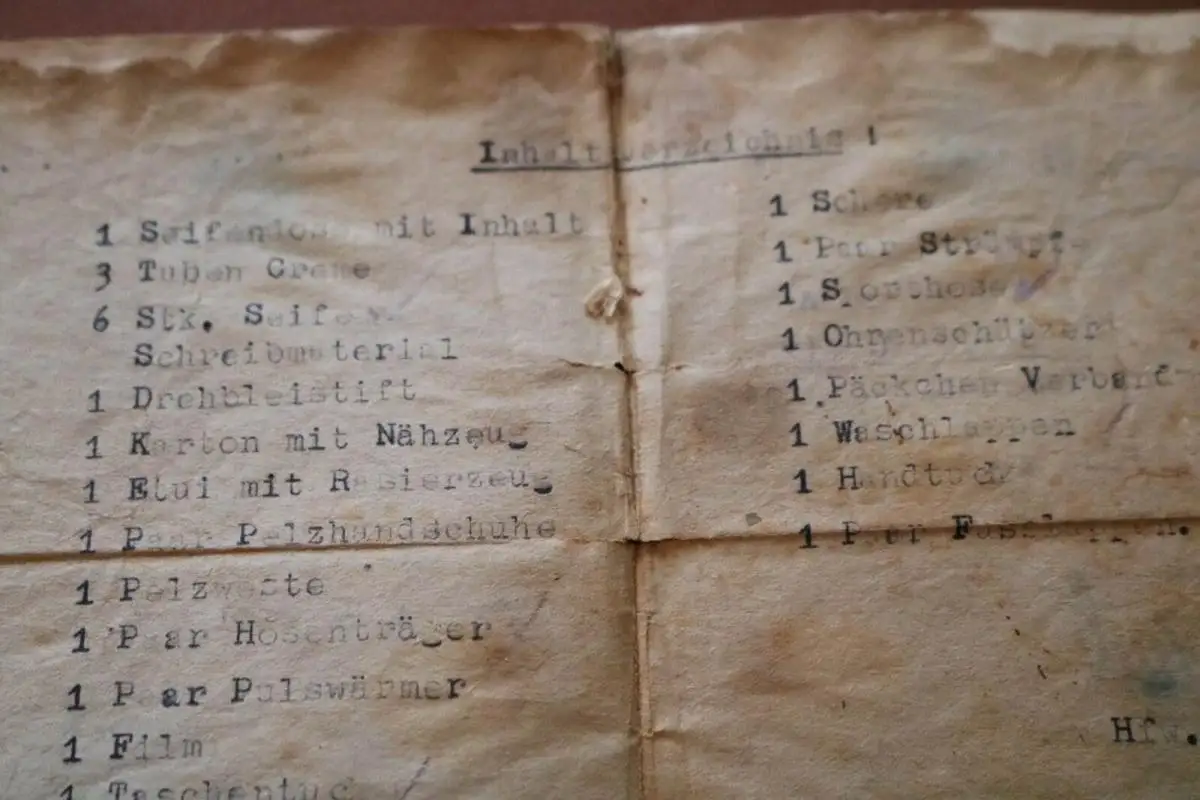 Inhaltsverzeichnis !
1 Seifendose mit Inhalt
3 Tuben Creme
6 Stk. Seifen
Schreibmaterial
1 Drehbleistift
1 Karton mit Nähzeug
1 Etui mit Rasierzeug
1 Paar Pelzhandschuhe
1 Pelzweste
1 Paar Hosenträger
1 Paar Pulswärmer
1 Film
1 Taschentuc
1 Schere
1 Paar Strümpfe
1 Sporthose
1 Ohrenschützer
1 Päckchen Verband-
1 Waschlappen
1 Handtuch
1 Paar Fusslappen.
Hfw.